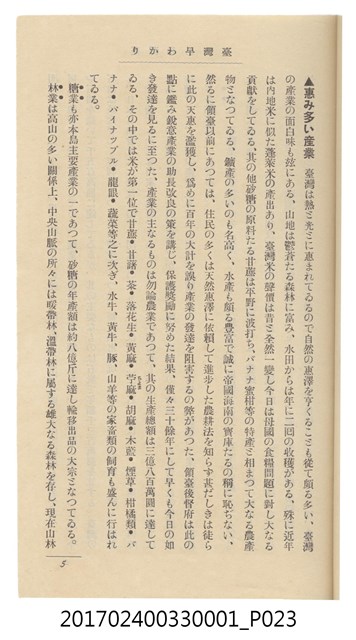 臺灣早わかり
▲惠み多い産業　臺灣は熱と光とに惠まれてゐるので自然の惠澤を享くることも從て頗る多い、臺灣
の産業の面白味も玆にある、山地は鬱蒼たる森林に富み、水田からは年に二回の收穫がある、殊に近年
は内地米に似た蓬萊米の産出あり、臺灣米の聲價は昔と全然一變し今日は母國の食糧問題に對し大なる
貢獻をしてゐる、其の他砂糖の原料たる甘蔗は平野に波打ち、バナナ蜜柑等の特産と相まつて大なる農産
物となつてゐる、鑛産の多いのも名高く、水産も頗る豐富で誠に帝國海南の寶庫たるの稱に恥ぢない、
然るに領臺以前にあつては、住民の多くは天然惠澤に依頼して進步した農耕法を知らず甚だしきは徒ら
に此の天惠を濫獲し、爲めに百年の大計を誤り産業の發達を阻害するの弊があつた、領臺後督府は此の
點に鑑み銳意産業の助長改良の策を講じ、保護奬勵に努めた結果、僅々三十餘年にして早くも今日の如
き發達を見るに至つた、産業の主なるものは勿論農業であつて、其の生産總額は三億八百萬圓に達して
ゐる、その中では米が第一位で甘蔗・甘藷・茶・落花生・黃麻・苧麻・胡麻・木藍・煙草・柑橘類・バ
ナナ・パイナツプル・龍眼・蔬菜等之に次ぎ、水牛、黃牛、豚、山羊等の家畜類の飼育も盛んに行はれ
てゐる。
糖業も亦本島主要産業の一であつて、砂糖の年産額は約八億斤に達し輸移出品の大宗となつてゐる。
林業は高山の多い關係上、中央山脈の所々には暖帶林、溫帶林に屬する雄大なる森林を存し、現在山林
5
201702400330001_P023